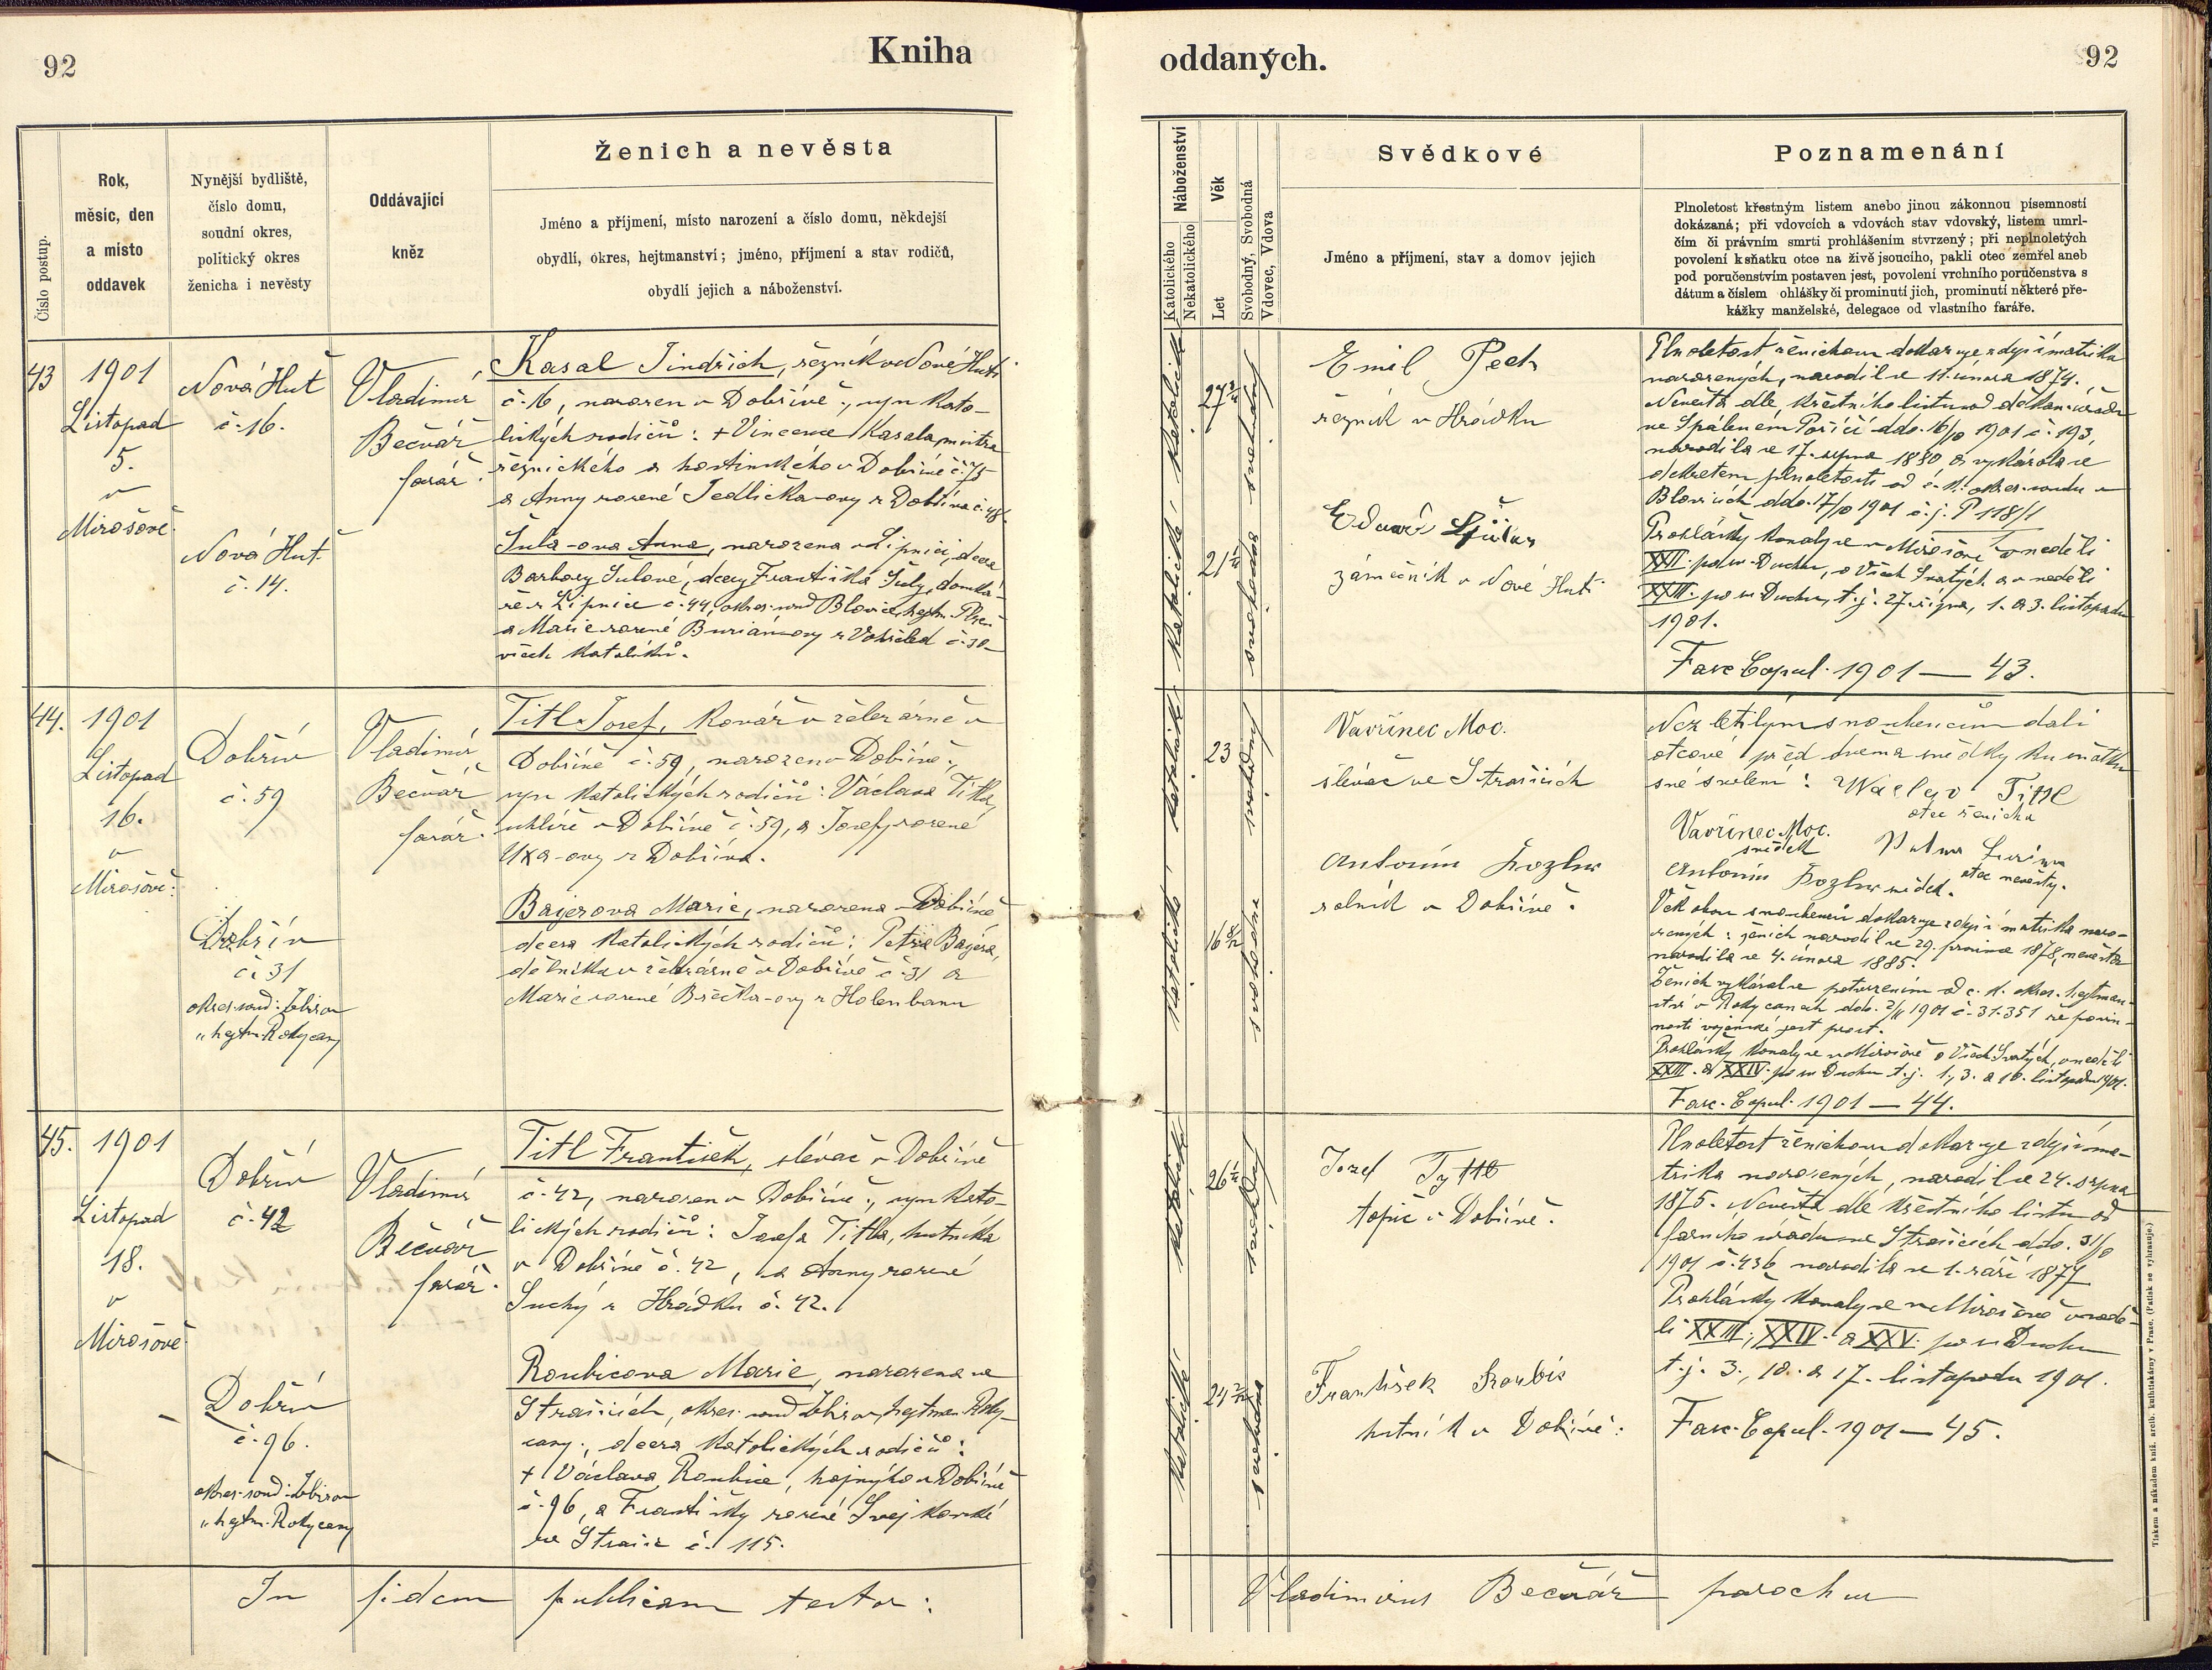 92
Kniha
oddaných.
92
Číslo postup.
Rok,
měsíc, den
a místo
oddavek
Nynější bydliště,
číslo domu,
soudní okres,
politický okres
ženicha i nevěsty
Oddávající
kněz
Ženich a nevěsta
Jméno a příjmení, místo narození a číslo domu, někdejší
obydlí, okres, hejtmanství; jméno, příjmení a stav rodičů,
obydlí jejich a náboženství.
Náboženství
Katolického
Nekatolického
Věk
Let
Svobodný, Svobodná
Vdovec, Vdova
Svědkové
Jméno a příjmení, stav a domov jejich
Poznamenání
Plnoletost křestným listem anebo jinou zákonnou písemností
dokázaná; při vdovcích a vdovách stav vdovský, listem umrl-
čím či právním smrti prohlášením stvrzený; při neplnoletých
povolení k sňatku otce na živě jsoucího, pakli otec zemřel aneb
pod poručenstvím postaven jest, povolení vrchního poručenstva s
dátum a číslem ohlášky či prominutí jich, prominutí některé pře-
kážky manželské, delegace od vlastního faráře.
43
1901
Listopad
5.
v
Mirošově
Nová Huť
č. 16.
Nová Huť
č. 14.
Vladimír
Bečvář
farář.
Kasal Jindřich, řezník v Nové Huti
č. 16, narozen v Dobřívě, syn kato-
lických rodičů: + Vincence Kasala, mistra
řeznického a hostinského v Dobřívě č. 75
a Anny rozené Jedlička-ovy z Dobříva č. 48.
Šula-ova Anna, narozena v Lipnici, dcera
Barbory Šulové, dcery Františka Šuly, domká-
ře z Lipnice č. 44, okres. soud Blovice, hejtm. Plzeň
a Marie rozené Buriánovy z Vohřeled č. 30
všech katolíků.
katolické
katolické
27 2/12
21 1/12
svobodný
svobodná
Emil Pech
řezník v Hrádku
Eduard
zámečník v Nové Huti
Plnoletost ženichovu dokazuje zdejší matrika
narozených, narodil se 11. února 1874.
Nevěsta dle křestního listu od děkan. úřadu
ve Spáleném Poříčí ddo. 16/10 1901 č. 193,
narodila se 17. srpna 1880 a vykázala se
dekretem plnoletosti od c. k. okres. soudu v
Blovicích ddo. 17/10 1901 č. j. P 118/1
Prohlášky konaly se v Mirošově v neděli
XXII. po sv. Duchu, o Všech Svatých a v neděli
XXIII. po sv Duchu, t. j. 27. října, 1. a 3. listopadu
1901.
Fasc Copul. 1901 — 43.
44.
1901
Listopad
16.
v
Mirošově:
Dobřív
č. 59
Dobřív
č. 31
okres. soud: Zbirov
„ hejtm. Rokycany
Vladimír
Bečvář
farář.
Titl Josef, kovář v železárně v
Dobřívě č. 59, narozen v Dobřívě,
syn katolických rodičů: Václava Titla,
uhlíře v Dobřívě č. 59, a Josefy rozené
Uxa-ovy z Dobříva.
Bayerova Marie, narozena v Dobřívě
dcera katolických rodičů: Petra Bayera,
dělníka v železárně v Dobřívě č. 31 a
Marie rozené Břečka-ovy z Holoubkova
katolické
katolické
23
16 8/12
svobodný
svobodná
Vavřinec Moc.
slévač ve Strašicích
Antonín Kozler
rolník v Dobřívě.
Nezletilým snoubencům dali
otcové před dvěma svědky ku sňatku
své svolení: Waclav Tittl
otec ženicha
Vavřinec Moc.
svědek
otec nevěsty.
Antonín Kozler svědek.
Věk obou snoubenců dokazuje zdejší matrika naro-
zených: ženich narodil se 29. prosince 1878, nevěsta
narodila se 4. února 1885.
Ženich vykázal se potvrzením od c. k. okres. hejtman-
ství v Rokycanech ddo. 2/11 1901 č. 31.351 že povin-
nosti vojenské jest prost.
Prohlášky konaly se v Mirošově o Všech Svatých, v neděli
XXIII. a XXIV. po sv Duchu t. j. 1., 3. a 10. listopadu 1901.
Fasc. Copul. 1901 — 44.
45.
1901
Listopad
18.
v
Mirošově
Dobřív
č. 42
Dobřív
č. 96.
okres. soud: Zbirov
„ hejtm. Rokycany
Vladimír
Bečvář
farář.
Titl František, slévač v Dobřívě
č. 42, narozen v Dobřívě, syn kato-
lických rodičů: Josefa Titla, hutníka
v Dobřívě č. 42, a Anny rozené
Suchý z Hrádku č. 42.
Roubicova Marie, narozena ve
Strašicích, okres. soud Zbirov, hejtman. Roky-
cany, dcera katolických rodičů:
+ Václava Roubice, hajného v Dobřívě
č. 96, a Františky rozené Švejkovské
ze Strašic č. 115.
katolické
katolické
26 2/12
24 2/12
svobodný
svobodná
Josef Tyttl
topič v Dobřívě.
František Roubic
hutník v Dobřívě:
Plnoletost ženichovu dokazuje zdejší ma-
trika narozených, narodil se 24. srpna
1875. Nevěsta dle křestního listu od
farního úřadu ve Strašicích ddo. 31/10
1901 č. 436 narodila se 1. září 1877
Prohlášky konaly se v Mirošově v nedě-
li XXIII., XXIV. a XXV. po sv Duchu
t. j. 3., 10. a 17. listopadu 1901.
Fasc. Copul. 1901 — 45.
In fidem publicam testor:
Vladimirus Bečvář parochus
Tiskem a nákladem kníž. arcib. knihtiskárny v Praze. (Patisk se vyhrazuje.)